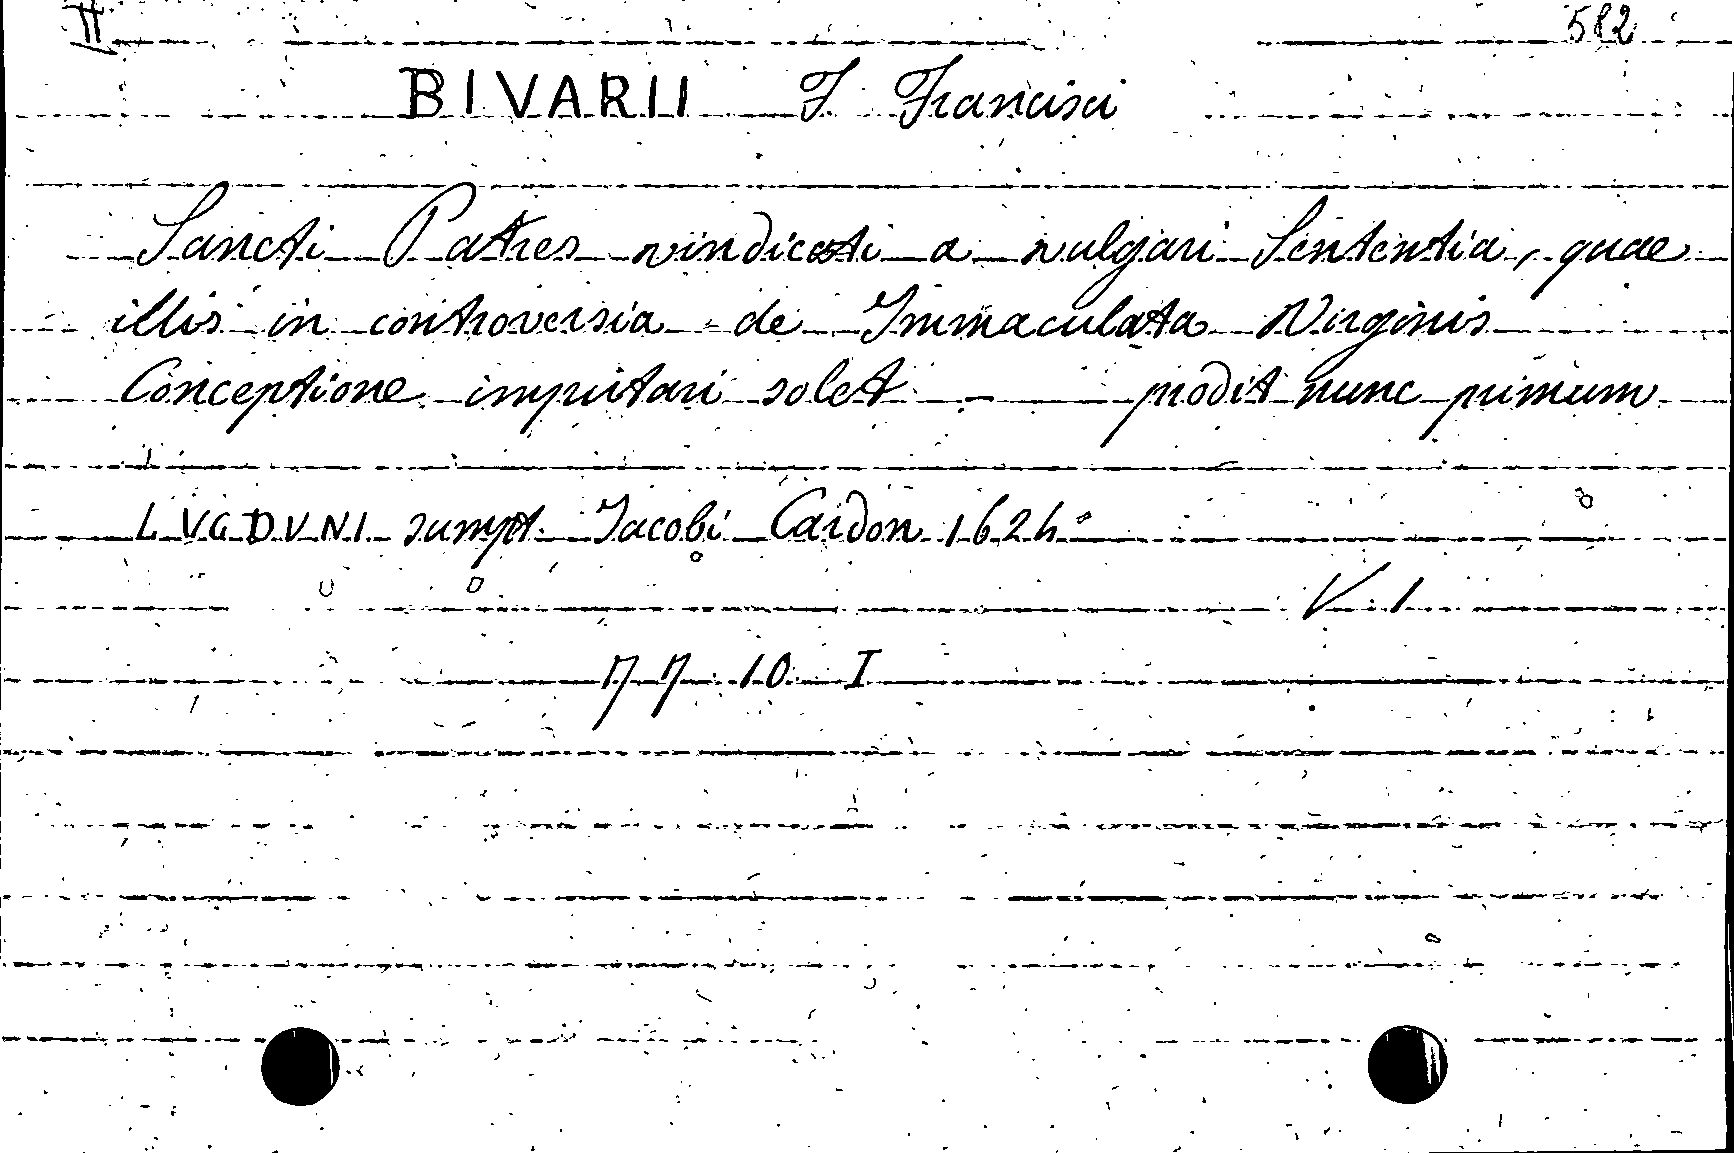 II 582
BIVARII F. Francisci
Sancti Patres vindicati a vulgari Sententia, quae
illis in controversia de Immaculata Virginis
Conceptione imputari solet - prodit nunc primum
LVGDVNI sumpt. Jacobi Cardon 1624°
V. 1
77 10 I